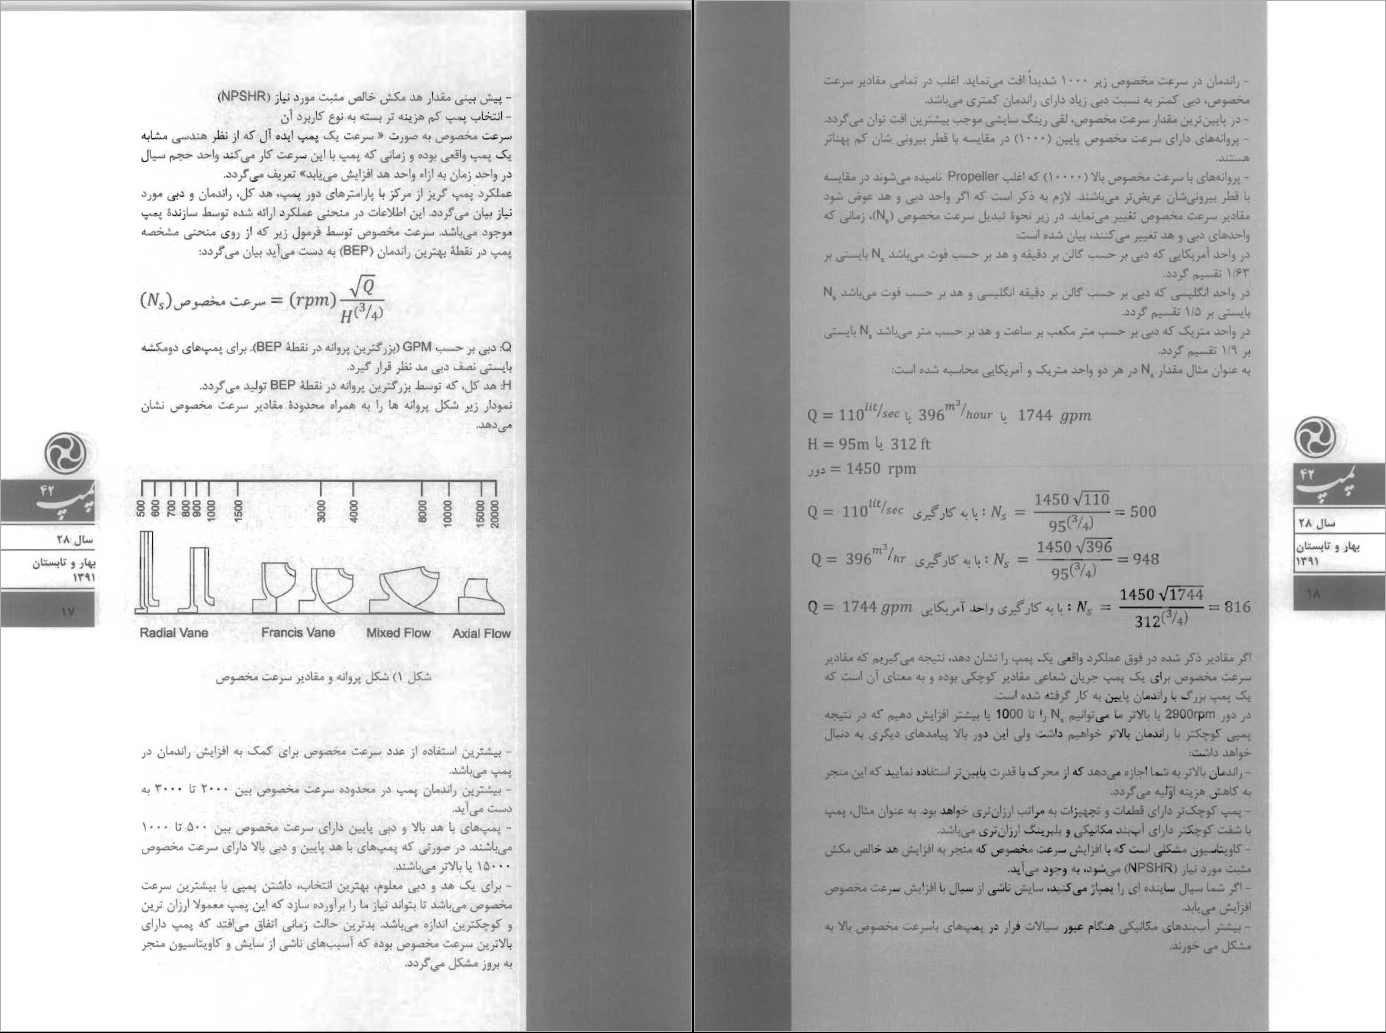 - پیش بینی مقدار هد مکش خالص مثبت مورد نیاز (NPSHR)
- انتخاب پمپ کم هزینه تر بسته به نوع کاربرد آن
سرعت مخصوص به صورت « سرعت یک پمپ ایده آل که از نظر هندسی مشابه
یک پمپ واقعی بوده و زمانی که پمپ با این سرعت کار می‌کند واحد حجم سیال
در واحد زمان به ازاء واحد هد افزایش می‌یابد» تعریف می‌گردد.
عملکرد پمپ گریز از مرکز با پارامترهای دور پمپ، هد کل، راندمان و دبی مورد
نیاز بیان می‌گردد. این اطلاعات در منحنی عملکرد ارائه شده توسط سازندهٔ پمپ
موجود می‌باشد. سرعت مخصوص توسط فرمول زیر که از روی منحنی مشخصه
پمپ در نقطهٔ بهترین راندمان (BEP) به دست می‌آید بیان می‌گردد:
(Nₛ) سرعت مخصوص = (rpm) √Q / H^(3/4)
Q: دبی بر حسب GPM (بزرگترین پروانه در نقطهٔ BEP). برای پمپ‌های دومکشه
بایستی نصف دبی مد نظر قرار گیرد.
H: هد کل، که توسط بزرگترین پروانه در نقطهٔ BEP تولید می‌گردد.
نمودار زیر شکل پروانه ها را به همراه محدودهٔ مقادیر سرعت مخصوص نشان
می‌دهد.
500 600 700 800 900 1000 1500 3000 4000 8000 10000 15000 20000
Radial Vane Francis Vane Mixed Flow Axial Flow
شکل ۱) شکل پروانه و مقادیر سرعت مخصوص
- بیشترین استفاده از عدد سرعت مخصوص برای کمک به افزایش راندمان در
پمپ می‌باشد.
- بیشترین راندمان پمپ در محدوده سرعت مخصوص بین ۲۰۰۰ تا ۳۰۰۰ به
دست می‌آید.
- پمپ‌های با هد بالا و دبی پایین دارای سرعت مخصوص بین ۵۰۰ تا ۱۰۰۰
می‌باشند. در صورتی که پمپ‌های با هد پایین و دبی بالا دارای سرعت مخصوص
۱۵۰۰۰ یا بالاتر می‌باشند.
- برای یک هد و دبی معلوم، بهترین انتخاب، داشتن پمپی با بیشترین سرعت
مخصوص می‌باشد تا بتواند نیاز ما را برآورده سازد که این پمپ معمولا ارزان ترین
و کوچکترین اندازه می‌باشد. بدترین حالت زمانی اتفاق می‌افتد که پمپ دارای
بالاترین سرعت مخصوص بوده که آسیب‌های ناشی از سایش و کاویتاسیون منجر
به بروز مشکل می‌گردد.
پمپ ۴۲
سال ۲۸
بهار و تابستان
۱۳۹۱
۱۷
- راندمان در سرعت مخصوص زیر ۱۰۰۰ شدیداً افت می‌نماید. اغلب در تمامی مقادیر سرعت
مخصوص، دبی کمتر به نسبت دبی زیاد دارای راندمان کمتری می‌باشد.
- در پایین‌ترین مقدار سرعت مخصوص، لقی رینگ سایشی موجب بیشترین افت توان می‌گردد.
- پروانه‌های دارای سرعت مخصوص پایین (۱۰۰۰) در مقایسه با قطر بیرونی شان کم پهناتر
هستند.
- پروانه‌های با سرعت مخصوص بالا (۱۰۰۰۰) که اغلب Propeller نامیده می‌شوند در مقایسه
با قطر بیرونی‌شان عریض‌تر می‌باشند. لازم به ذکر است که اگر واحد دبی و هد عوض شود
مقادیر سرعت مخصوص تغییر می‌نماید. در زیر نحوهٔ تبدیل سرعت مخصوص (Nₛ)، زمانی که
واحدهای دبی و هد تغییر می‌کنند، بیان شده است:
در واحد آمریکایی که دبی بر حسب گالن بر دقیقه و هد بر حسب فوت می‌باشد Nₛ بایستی بر
۱/۶۳ تقسیم گردد.
در واحد انگلیسی که دبی بر حسب گالن بر دقیقه انگلیسی و هد بر حسب فوت می‌باشد Nₛ
بایستی بر ۱/۵ تقسیم گردد.
در واحد متریک که دبی بر حسب متر مکعب بر ساعت و هد بر حسب متر می‌باشد Nₛ بایستی
بر ۱/۹ تقسیم گردد.
به عنوان مثال مقدار Nₛ در هر دو واحد متریک و آمریکایی محاسبه شده است:
Q = 110 lit/sec یا 396 m³/hour یا 1744 gpm
H = 95m یا 312 ft
دور = 1450 rpm
Q = 110 lit/sec با به کارگیری : Nₛ = 1450 √110 / 95^(3/4) = 500
Q = 396 m³/hr با به کارگیری : Nₛ = 1450 √396 / 95^(3/4) = 948
Q = 1744 gpm با به کارگیری واحد آمریکایی : Nₛ = 1450 √1744 / 312^(3/4) = 816
اگر مقادیر ذکر شده در فوق عملکرد واقعی یک پمپ را نشان دهد، نتیجه می‌گیریم که مقادیر
سرعت مخصوص برای یک پمپ جریان شعاعی مقادیر کوچکی بوده و به معنای آن است که
یک پمپ بزرگ با راندمان پایین به کار گرفته شده است.
در دور 2900rpm یا بالاتر ما می‌توانیم Nₛ را تا 1000 یا بیشتر افزایش دهیم که در نتیجه
پمپی کوچکتر با راندمان بالاتر خواهیم داشت ولی این دور بالا پیامدهای دیگری به دنبال
خواهد داشت:
- راندمان بالاتر به شما اجازه می‌دهد که از محرک با قدرت پایین‌تر استفاده نمایید که این منجر
به کاهش هزینه اوّلیه می‌گردد.
- پمپ کوچک‌تر دارای قطعات و تجهیزات به مراتب ارزان‌تری خواهد بود. به عنوان مثال، پمپ
با شفت کوچکتر دارای آب‌بند مکانیکی و بلبرینگ ارزان‌تری می‌باشد.
- کاویتاسیون مشکلی است که با افزایش سرعت مخصوص که منجر به افزایش هد خالص مکش
مثبت مورد نیاز (NPSHR) می‌شود، به وجود می‌آید.
- اگر شما سیال ساینده ای را پمپاژ می‌کنید، سایش ناشی از سیال با افزایش سرعت مخصوص
افزایش می‌یابد.
- بیشتر آب‌بندهای مکانیکی هنگام عبور سیالات فرار در پمپ‌های باسرعت مخصوص بالا به
مشکل می خورند.
پمپ ۴۲
سال ۲۸
بهار و تابستان
۱۳۹۱
۱۸